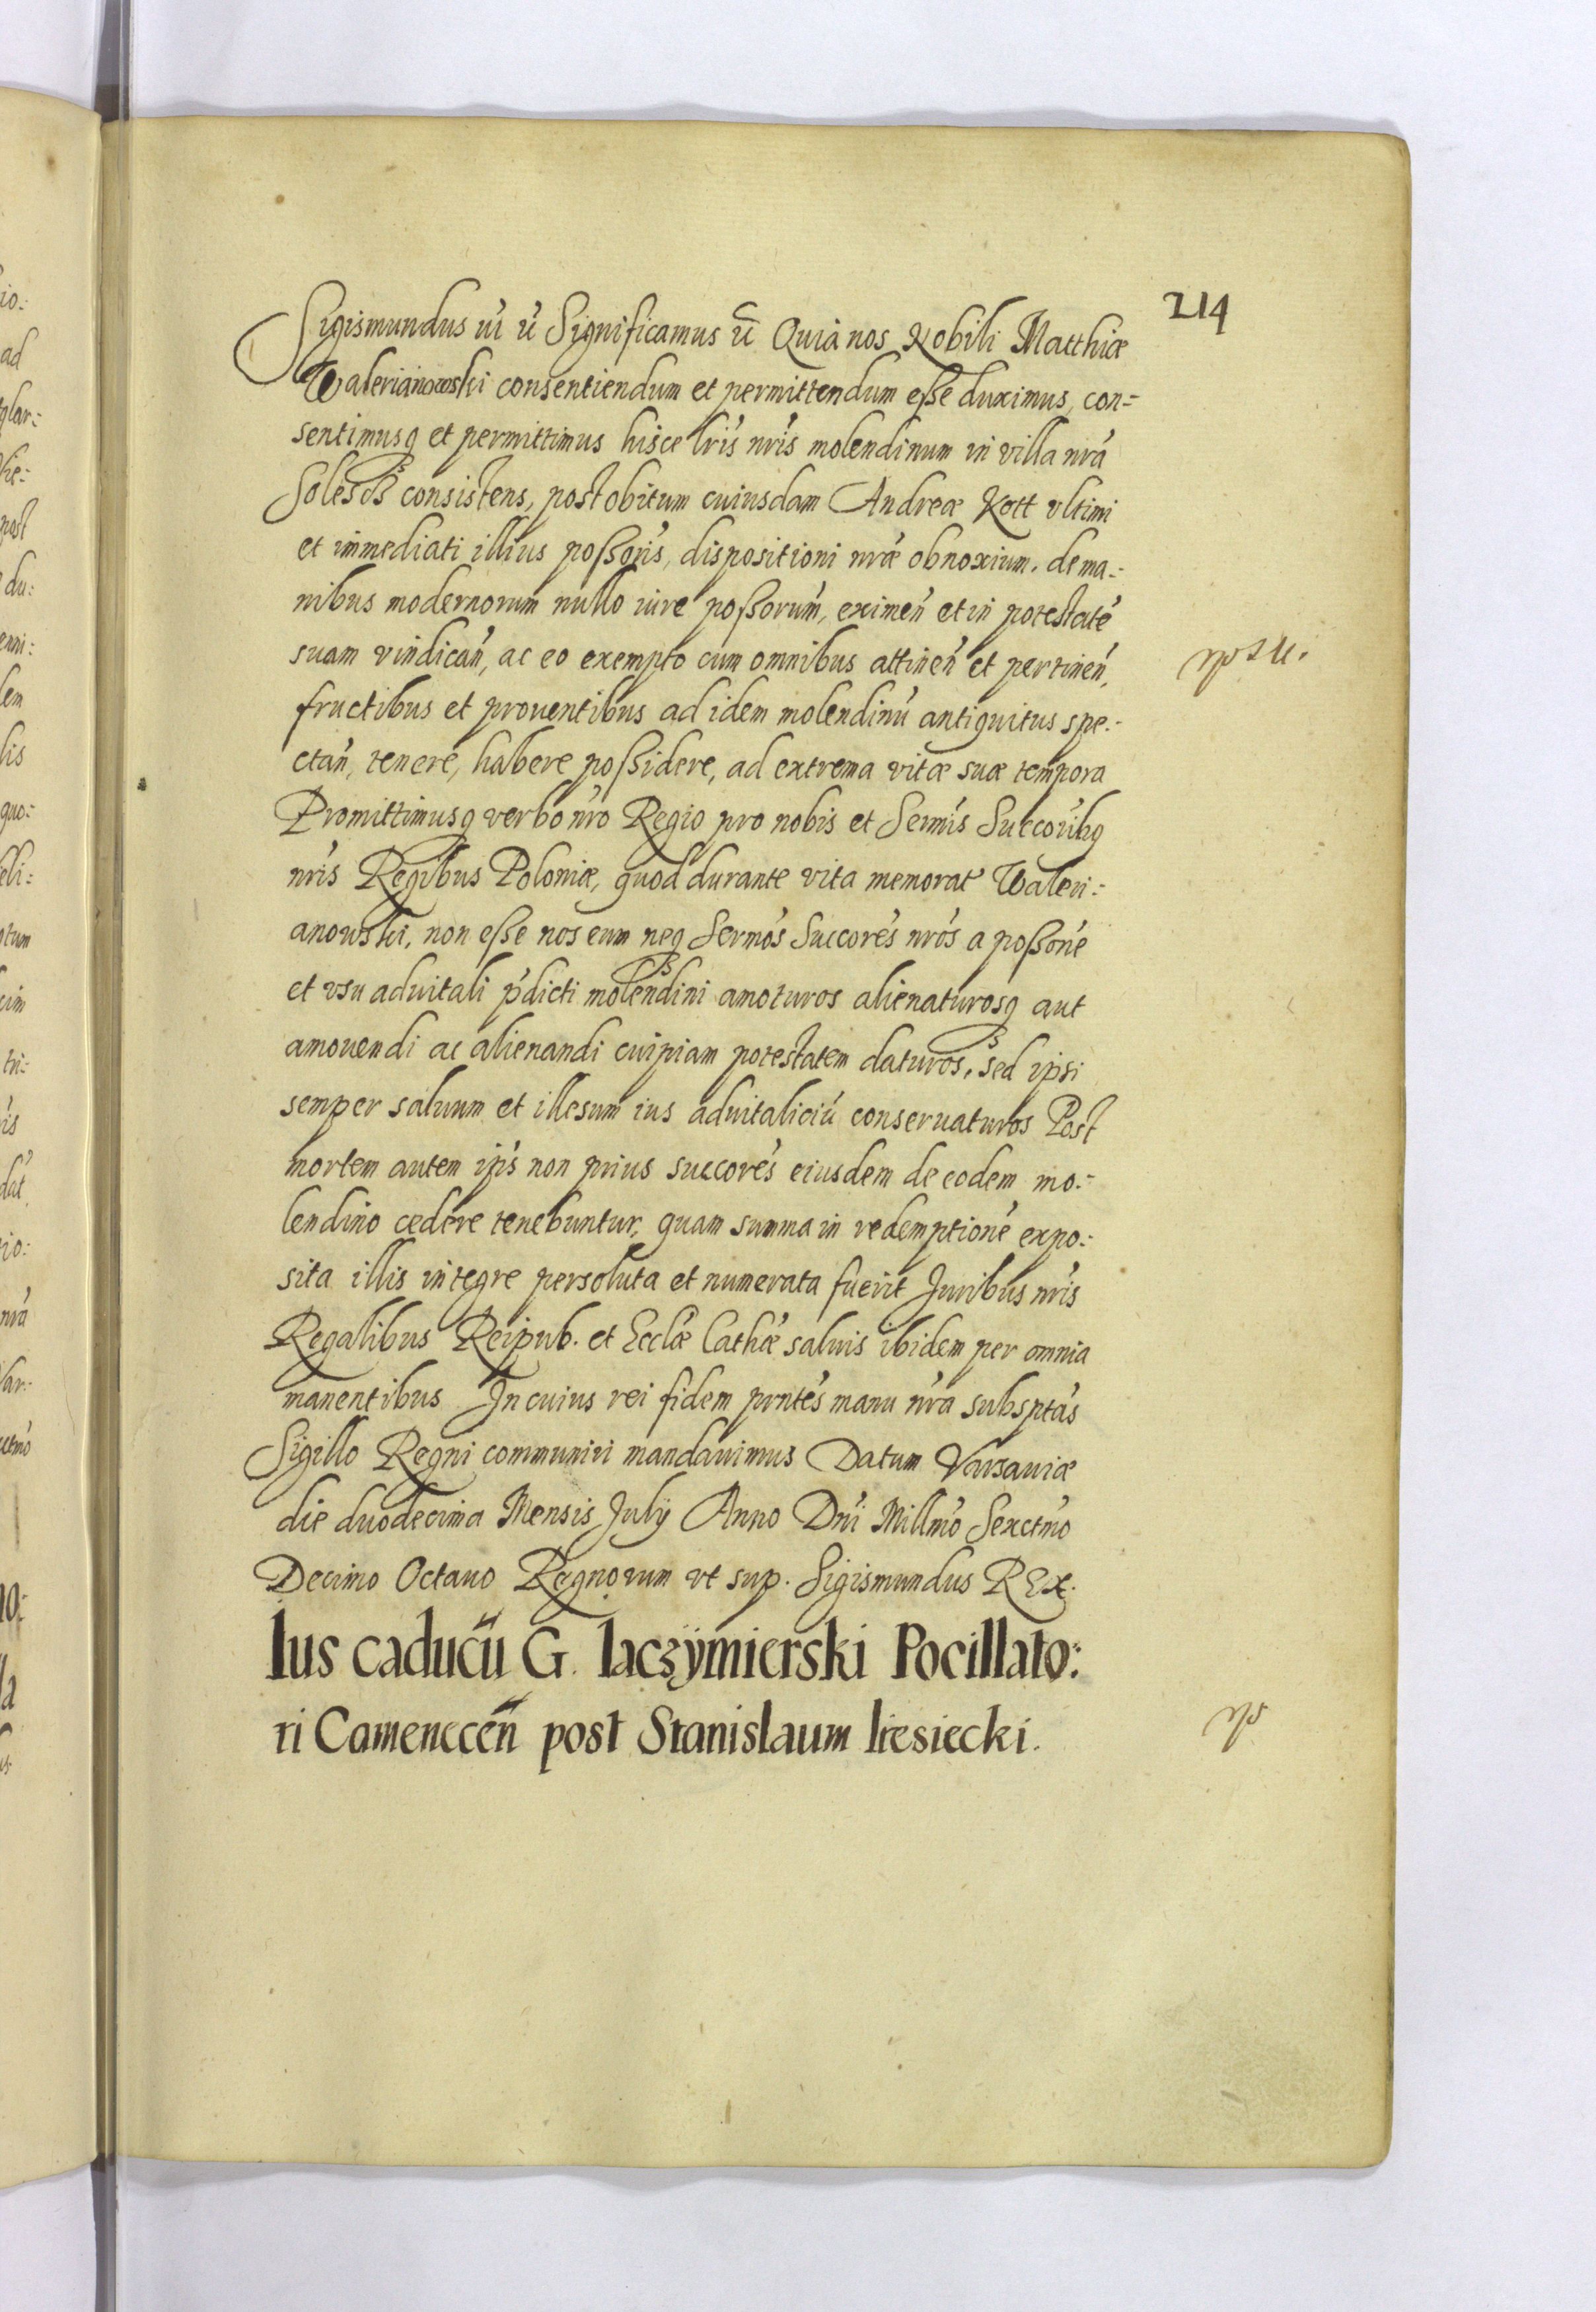 214
Sigismundus III ũ Significamus ũ Quia nos Nobili Matthiæ
Walerianowski consentiendum et permittendum eſſe duximus, con=
sentimusq et permittimus hisce lris nris molendinum in villa nrá
consistens, post obitum cuiusdam Andreæ Kott vltimi
et immediati illius poſſoris, dispositioni nræ obnoxium, de ma=
nibus modernorum nullo iure poſſorum, eximeń et in potestaté
suam vindicań, ac eo exempto cum omnibus attineń et pertineń,
fructibus et prouentibus ad idem molendinú antiquitus spe=
ctań, tenere, habere poſſidere, ad extrema vitæ suæ tempora
Promittimusq verbo nro Regio pro nobis et Sermis Succoribq
nris Regibus Poloniæ, quod durante vita memorat Waleri=
anowski, non eſſe nos eum neq Sermos Succores nros a poſſone
et vsu aduitali pdicti molendini amoturos alienaturosq aut
amouendi ac alienandi cuipiam potestatem daturos, sed ipsi
semper saluum et illesum ius aduitaliciú conseruaturos Post
mortem autem ipis non prius succores eiusdem de eodem mo=
lendino cedere tenebuntur, quam summa in redemptioné expo=
sita illis integre persoluta et numerata fuerit Juribus nris
Regalibus Reipub. et Ecclæ Cathæ saluis ibidem per omnia
manentibus In cuius rei fidem pntes manu nra subsptas
Sigillo Regni communiri mandauimus Datum Varsauiæ
die duodecima Mensis July Anno Dni Millmo Sexctmo
Decimo Octauo Regnorum vt sup. Sigismundus REx.
Ius caducũ G. Iaczymierski Pocillato:
ri Camenecen̄ post Stanislaum